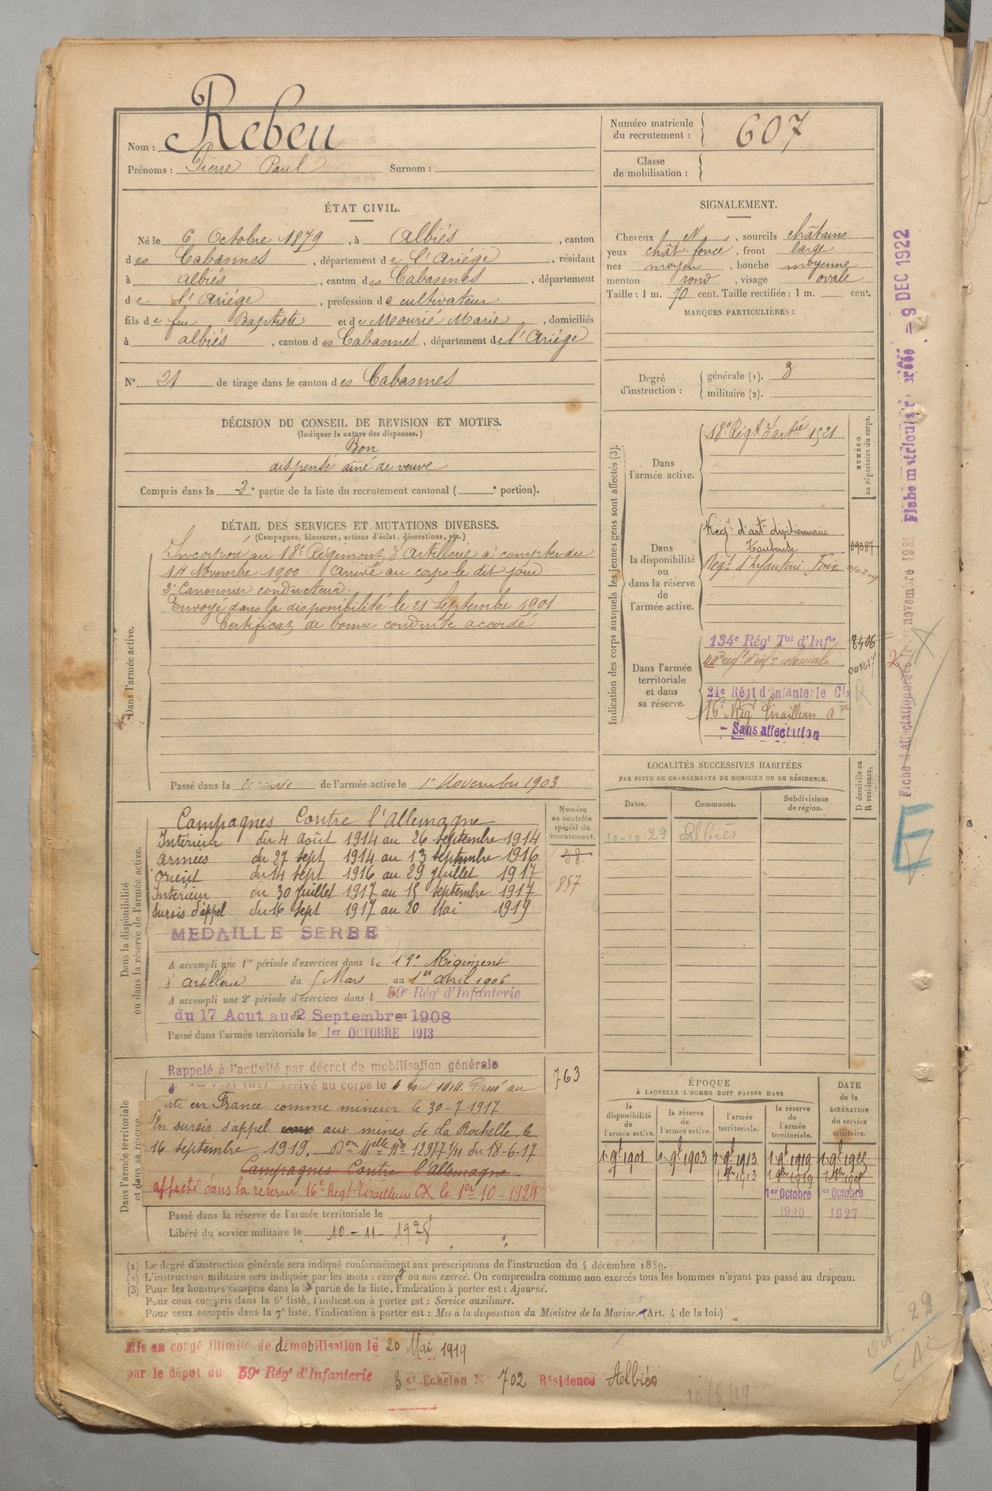 Nom : Rebeu
Prénoms : Pierre Paul Surnom :
Numéro matricule du recrutement : 607
Classe de mobilisation :
ÉTAT CIVIL.
Né le 6 Octobre 1879, à Albiés, canton
des Cabannes, département de l'Ariège, résidant
à albiés, canton des Cabannes, département
de l'Ariége, profession de cultivateur
fils de feu Baptiste et de Mourié Marie, domiciliés
à albiés, canton des Cabannes, département de l'Ariége
N° 21 de tirage dans le canton des Cabannes
SIGNALEMENT.
Cheveux N, sourcils châtains
yeux chât foncé, front large
nez moyen, bouche moyenne
menton rond, visage ovale
Taille : 1 m. 70 cent. Taille rectifiée : 1 m. cent.
MARQUES PARTICULIÈRES :
Degré d'instruction : générale (1). 3
militaire (2).
DÉCISION DU CONSEIL DE REVISION ET MOTIFS.
(Indiquer la nature des dispenses.)
Bon
dispensé ainé de veuve
Compris dans la 2e partie de la liste du recrutement cantonal ( e portion).
DÉTAIL DES SERVICES ET MUTATIONS DIVERSES.
(Campagnes, blessures, actions d'éclat, décorations, etc.)
Dans l'armée active.
Incorporé au 18e Régiment d'Artillerie à compter du
14 Novembre 1900 Arrivé au corps le dit jour
2e Canonnier conducteur
Envoyé dans la disponibilité le 21 Septembre 1901
Certificat de bonne conduite accordé
Passé dans la réserve de l'armée active le 1er Novembre 1903
Indication des corps auxquels les jeunes gens sont affectés (3).
NUMÉRO au répertoire du corps.
Dans l'armée active.
18e Régt d'artie 1521
Dans la disponibilité ou dans la réserve de l'armée active.
Régt d'artie divisionnaire
Toulouse
Régt d'Infanterie Foix
Dans l'armée territoriale et dans sa réserve.
134e Régt Tal d'Infie 8406
21e Régt d'Infanterie Cle
16e Rég Tirailleurs
- Sans affectation
LOCALITÉS SUCCESSIVES HABITÉES
PAR SUITE DE CHANGEMENTS DE DOMICILE OU DE RÉSIDENCE.
D domicile ou R résidence.
Dates. Communes. Subdivisions de région.
29 Albiés
Dans la disponibilité ou dans la réserve de l'armée active.
Numéro au contrôle spécial du recrutement.
Campagnes Contre l'Allemagne
Intérieur du 4 Août 1914 au 26 septembre 1914
armées du 27 sept 1914 au 13 septembre 1916
orient du 14 sept 1916 au 29 juillet 1917
Intérieur du 30 juillet 1917 au 15 septembre 1917
Sursis d'appel du 16 sept 1917 au 20 Mai 1919
857
MEDAILLE SERBE
A accompli une 1re période d'exercices dans le 18e Régiment
d'artillerie du 5 Mars au 1er Avril 1906
A accompli une 2e période d'exercices dans l 59e Régt d'Infanterie
du 17 Aout au 2 Septembre 1908
Passé dans l'armée territoriale le 1er OCTOBRE 1913
Dans l'armée territoriale et dans sa réserve
Rappelé à l'activité par décret de mobilisation générale
arrivé au corps le 4 Août 1914. Passé au
en France comme mineur le 30-7-1917
En sursis d'appel aux mines de La Rochelle le
16 septembre 1919. Don Mielle No 12977 1/11 du 18-6-17
Campagnes Contre l'allemagne
affecté dans la réserve 16e Regt tirailleurs le 1er-10-1924
763
Passé dans la réserve de l'armée territoriale le
Libéré du service militaire le 10-11-1928
ÉPOQUE
À LAQUELLE L'HOMME DOIT PASSER DANS
la disponibilité de l'armée active.
la réserve de l'armée active.
l'armée territoriale.
la réserve de l'armée territoriale.
DATE de la LIBÉRATION du service militaire.
1er Octobre 1920
1er Octobre 1927
(1) Le degré d'instruction générale sera indiqué conformément aux prescriptions de l'instruction du 4 décembre 1889.
(2) L'instruction militaire sera indiquée par les mots : exercé ou non exercé. On comprendra comme non exercés tous les hommes n'ayant pas passé au drapeau.
(3) Pour les hommes compris dans la 5e partie de la liste, l'indication à porter est : Ajourné.
Pour ceux compris dans la 6e liste, l'indication à porter est : Service auxiliaire.
Pour ceux compris dans la 7e liste, l'indication à porter est : Mis à la disposition du Ministre de la Marine. (Art. 4 de la loi.)
Mis en congé illimité de démobilisation le 20 Mai 1919
par le dépôt du 59e Régt d'Infanterie 3e Echelon N° 702 Résidence Albiés
- 9 DEC 1922
E